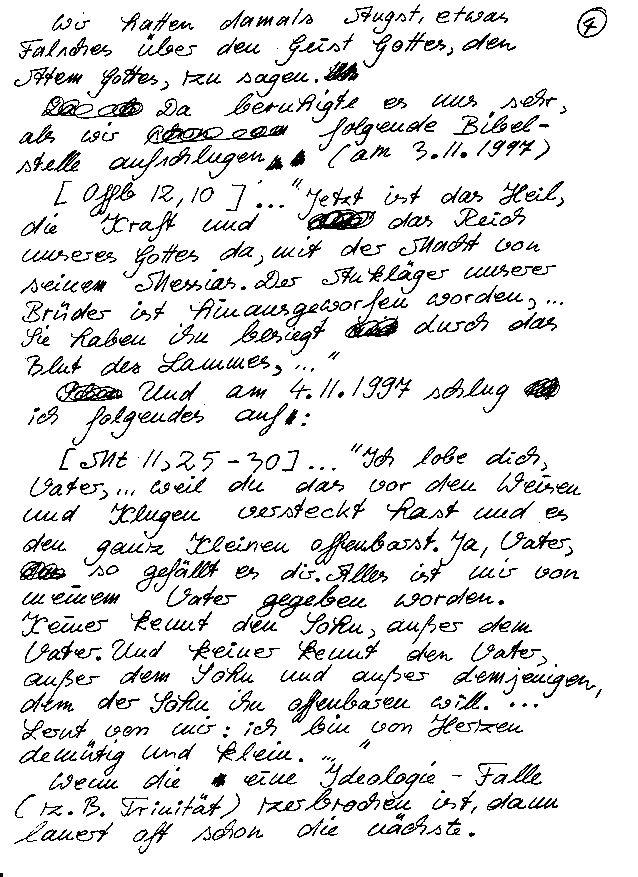 Wir hatten damals Angst, etwas
④
Falsches über den Geist Gottes, den
Atem Gottes, zu sagen.
Da beruhigte es uns sehr,
als wir folgende Bibel-
stelle aufschlugen (am 3.11.1997)
[Offb 12,10] ... "Jetzt ist das Heil,
die Kraft und das Reich
unseres Gottes da, mit der Macht von
seinem Messias. Der Ankläger unserer
Brüder ist hinausgeworfen worden, ...
Sie haben ihn besiegt durch das
Blut des Lammes, ..."
Und am 4.11.1997 schlug
ich folgendes auf:
[Mt 11,25-30] ... "Ich lobe dich,
Vater, ... weil du das vor den Weisen
und Klugen versteckt hast und es
den ganz Kleinen offenbarst. Ja, Vater,
so gefällt es dir. Alles ist mir von
meinem Vater gegeben worden.
Keiner kennt den Sohn, außer dem
Vater. Und keiner kennt den Vater,
außer dem Sohn und außer demjenigen,
dem der Sohn ihn offenbaren will. ...
Lernt von mir: ich bin von Herzen
demütig und klein. ..."
Wenn die eine Ideologie-Falle
(z.B. Trinität) zerbrochen ist, dann
lauert oft schon die nächste.